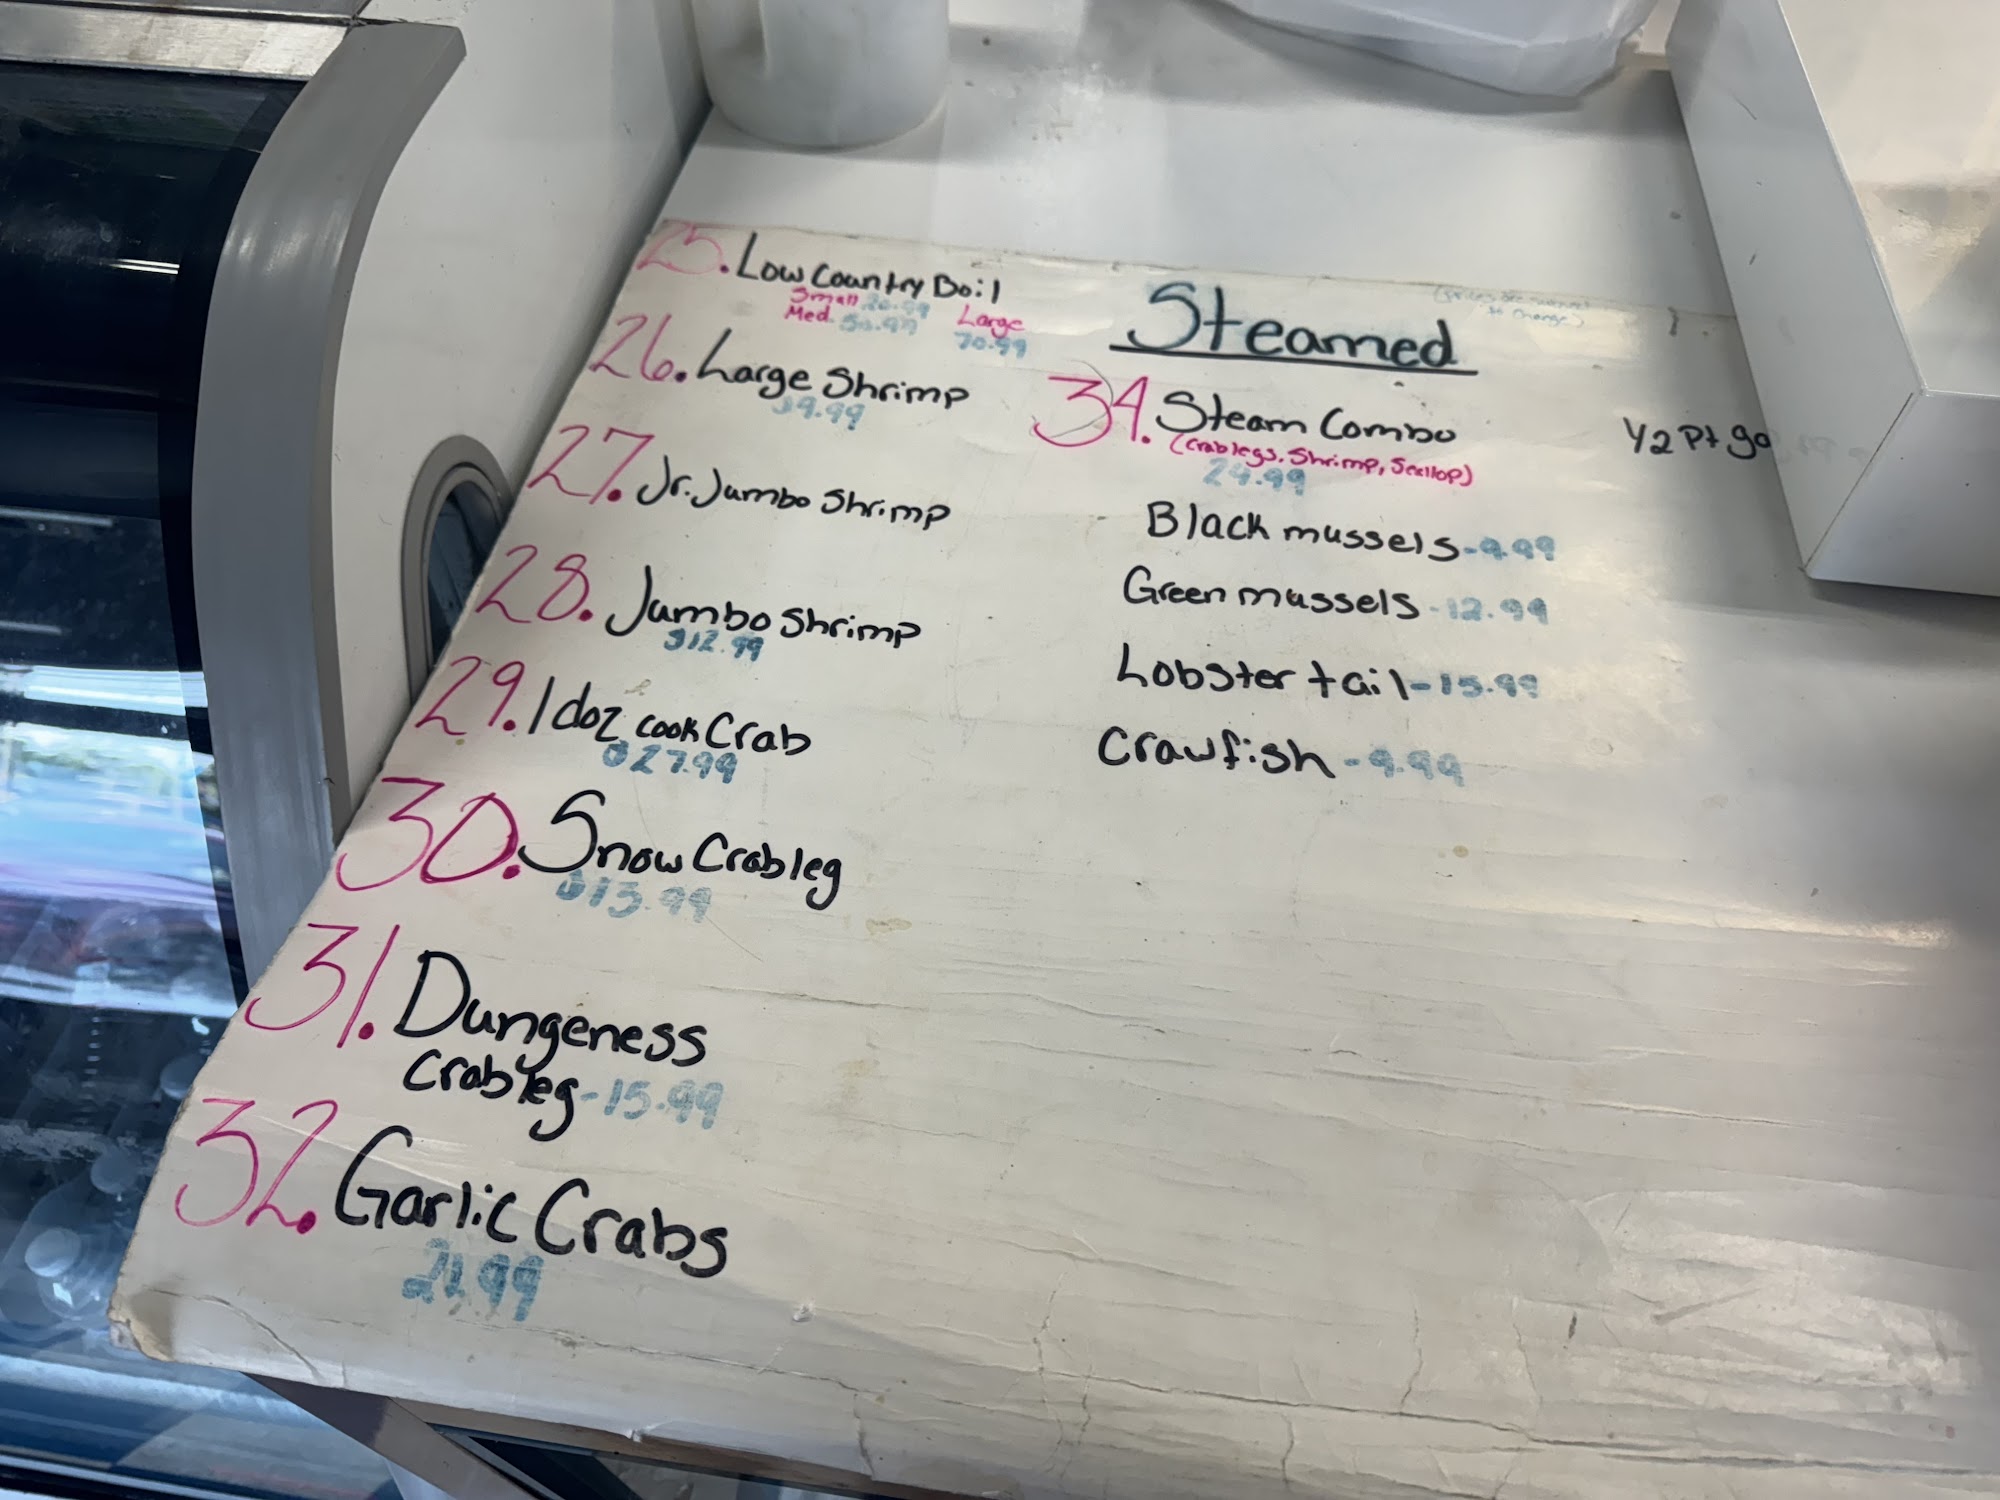 25. Low Country Boil
Small
Med. 50.99
Large
70.99
26. Large Shrimp
$9.99
27. Jr. Jumbo Shrimp
28. Jumbo Shrimp
$12.99
29. 1 doz cook Crab
$27.99
30. Snow Crab leg
$13.99
31. Dungeness
Crab leg - 15.99
32. Garlic Crabs
Steamed
(prices are subject
to change)
34. Steam Combo
(Crab legs, Shrimp, Scallop)
24.99
Black mussels - 9.99
Green mussels - 12.99
Lobster tail - 15.99
Crawfish - 9.99
1/2 Pt